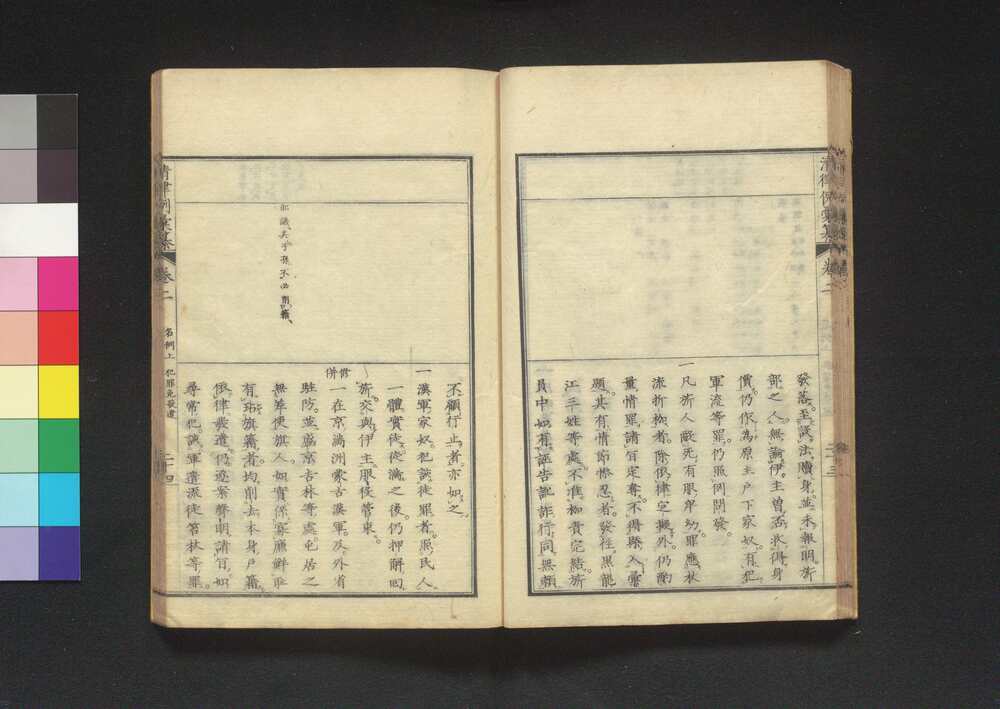 清律例彙纂 卷二 二十三
發落至設法贖身並未報明旂
部之人無論伊主曾否收得身
價仍作為原主戶下家奴有犯
軍流等罪仍照例問發
一凡旂人毆死有服卑幼罪應杖
流折枷者除依律定擬外仍酌
量情罪請旨定奪不得槩入彙
題其有情節慘忍者發往黑龍
江三姓等處不准枷責完結旂
員中如有誣告訛詐行同無賴
不顧行止者亦如之
一漢軍家奴犯該徒罪者照民人
一體實徒徒滿之後仍押解回
旂交與伊主服役管束
修併
一在京滿洲蒙古漢軍及外省
駐防並盛京吉林等處屯居之
無差使旗人如實係寡廉鮮恥
有玷旗籍者均削去本身戶籍
依律發遣仍逐案聲明請旨如
尋常犯該軍遣流徒笞杖等罪
此議夫子孫不必削籍
清律例彙纂 卷二 名例上 犯罪免發遣 二十四